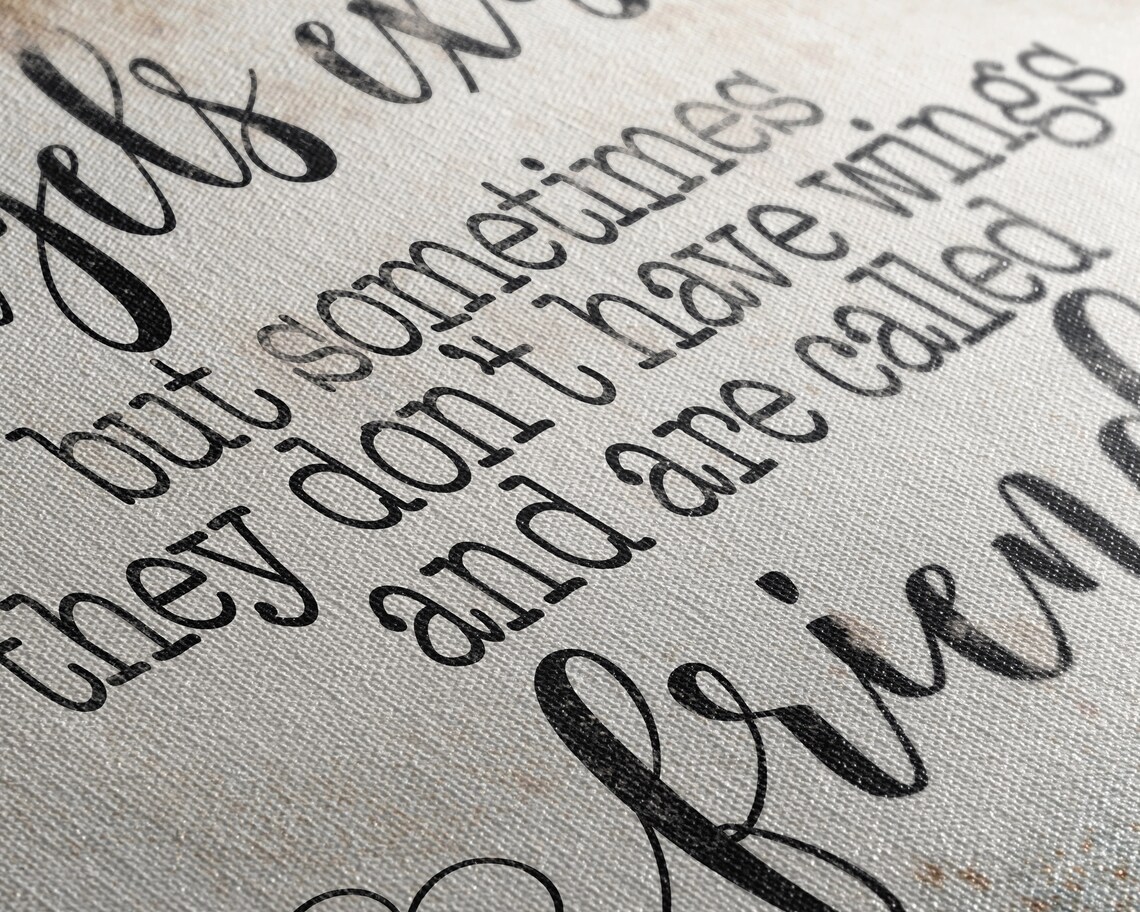 gels ex
but sometimes
they don't have wings
and are called
frien